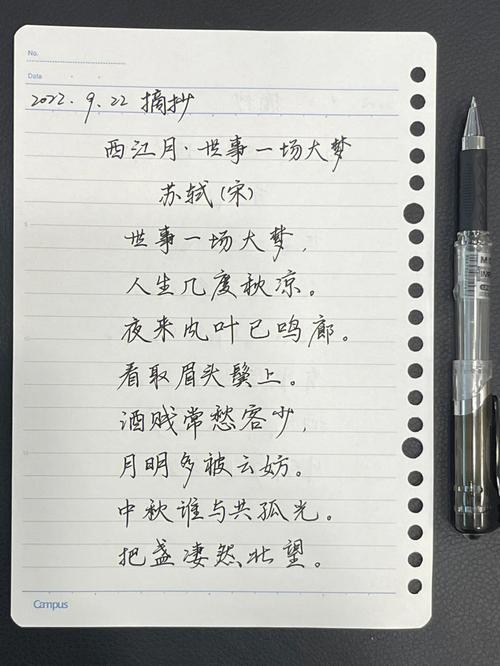 No.
Data
2022.9.22 摘抄
西江月·世事一场大梦
苏轼(宋)
世事一场大梦,
人生几度秋凉。
夜来风叶已鸣廊。
看取眉头鬓上。
酒贱常愁客少,
月明多被云妨。
中秋谁与共孤光。
把盏凄然北望。
Campus